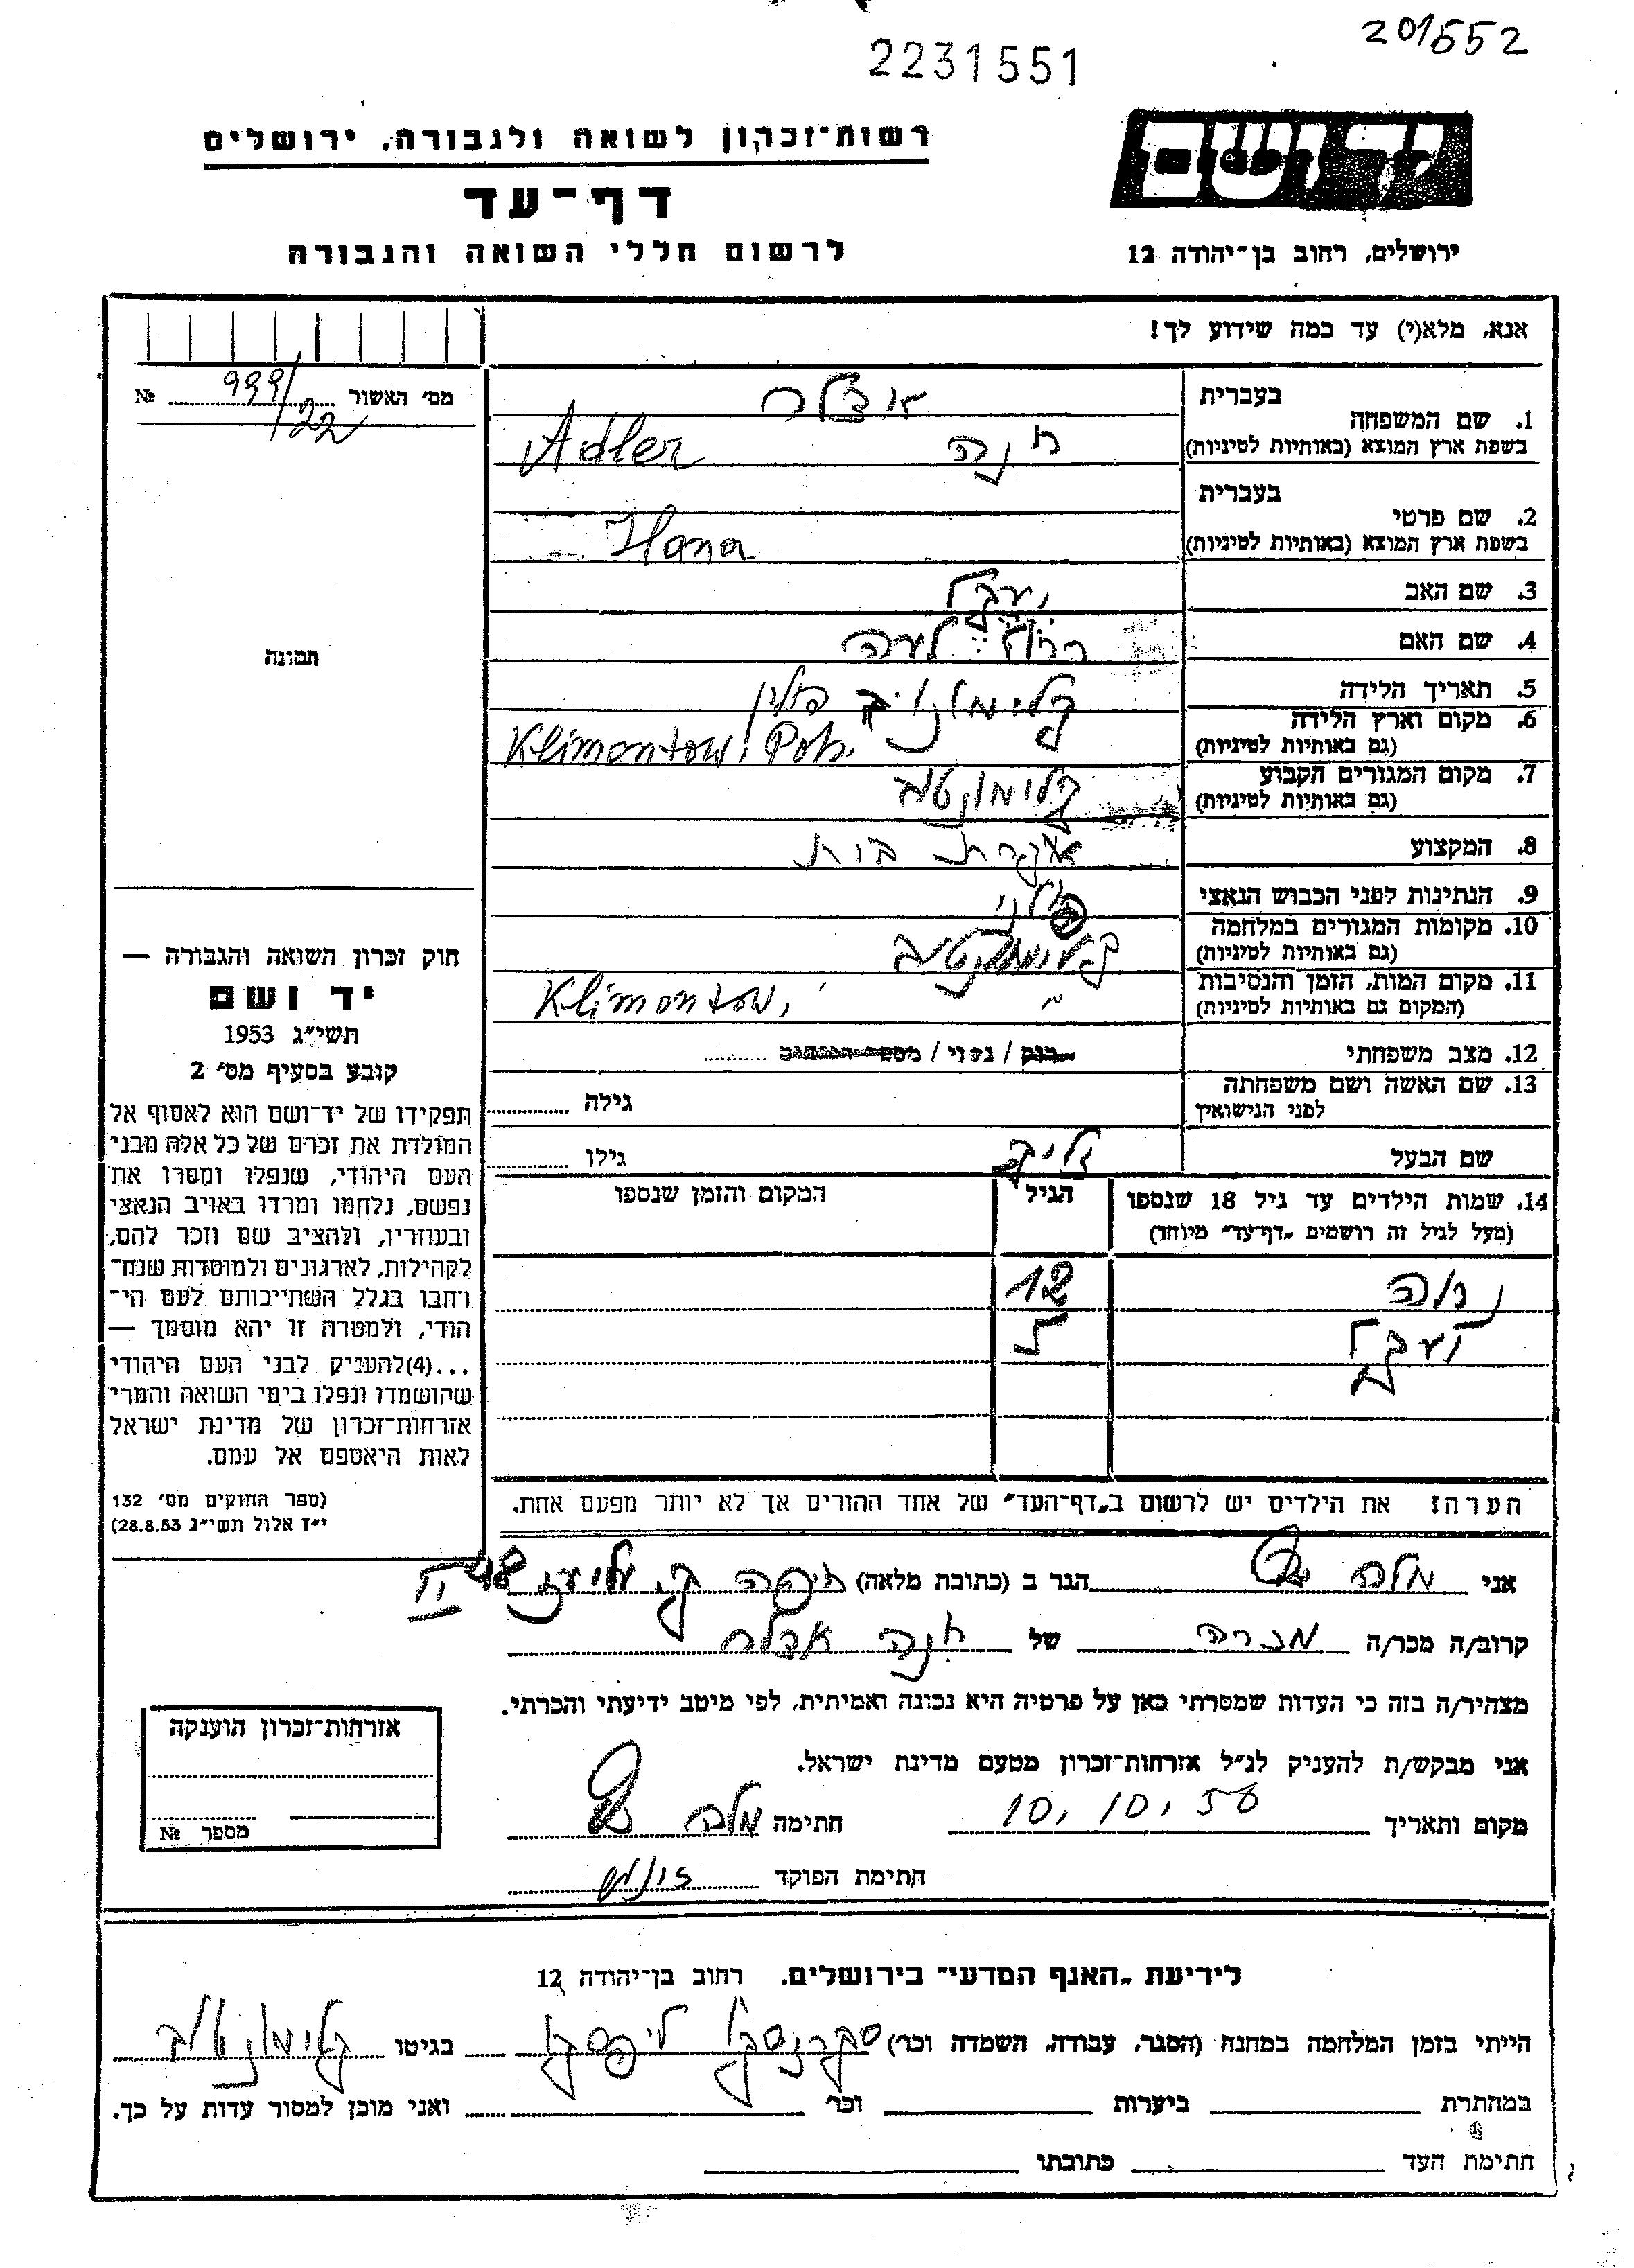 201552
2231551
יד ושם
רשות־זכרון לשואה ולגבורה, ירושלים
דף־עד
לרשום חללי השואה והגבורה
ירושלים, רחוב בן־יהודה 12
אנא, מלא(י) עד כמה שידוע לך!
מס׳ האשור 999/22 №
1. שם המשפחה
בעברית
אדלר
בשפת ארץ המוצא (באותיות לטיניות)
חנה Adler
2. שם פרטי
בעברית
בשפת ארץ המוצא (באותיות לטיניות)
Hana
3. שם האב
יעקב
4. שם האם
לאה
5. תאריך הלידה
6. מקום וארץ הלידה
(גם באותיות לטיניות)
קלימונטוב פולין
Klimontow, Pol.
7. מקום המגורים הקבוע
(גם באותיות לטיניות)
קלימונטוב
8. המקצוע
עקרת בית
9. הנתינות לפני הכבוש הנאצי
פולני
10. מקומות המגורים במלחמה
(גם באותיות לטיניות)
קלימונטוב
11. מקום המות, הזמן והנסיבות
(המקום גם באותיות לטיניות)
Klimontow,
12. מצב משפחתי
רווק / נשוי / מספר הילדים
13. שם האשה ושם משפחתה
לפני הנישואין
גילה
שם הבעל
גילו
14. שמות הילדים עד גיל 18 שנספו
(מעל לגיל זה רושמים „דף־עד” מיוחד)
הגיל
המקום והזמן שנספו
12
יעקב 5
הערה! את הילדים יש לרשום ב„דף־העד” של אחד ההורים אך לא יותר מפעם אחת.
תמונה
חוק זכרון השואה והגבורה —
יד ושם
תשי״ג 1953
קובע בסעיף מס׳ 2
תפקידו של יד־ושם הוא לאסוף אל
המולדת את זכרם של כל אלה מבני
העם היהודי, שנפלו ומסרו את
נפשם, נלחמו ומרדו באויב הנאצי
ובעוזריו, ולהציב שם וזכר להם,
לקהילות, לארגונים ולמוסדות שנח־
רחבו בגלל השתייכותם לעם הי־
הודי, ולמטרה זו יהא מוסמך —
...(4)להעניק לבני העם היהודי
שהושמדו ונפלו בימי השואה והמרי
אזרחות־זכרון של מדינת ישראל
לאות היאספם אל עמם.
(ספר החוקים מס׳ 132
י״ז אלול תשי״ג 28.8.53)
אני מלכה הגר ב (כתובת מלאה) חיפה ק. אליעזר 48 II
קרוב/ה מכר/ה מכרה של חנה אדלר
מצהיר/ה בזה כי העדות שמסרתי כאן על פרטיה היא נכונה ואמיתית, לפי מיטב ידיעתי והכרתי.
אני מבקש/ת להעניק לנ״ל אזרחות־זכרון מטעם מדינת ישראל.
מקום ותאריך 10.10.56 חתימה מלכה
חתימת הפוקד
אזרחות־זכרון הוענקה
מספר №
לידיעת „האגף המדעי” בירושלים. רחוב בן־יהודה 12
הייתי בזמן המלחמה במחנה (הסגר, עבודה, השמדה וכו׳) בגיטו קלימונטוב
במחתרת ביערות וכו׳ ואני מוכן למסור עדות על כך.
חתימת העד כתובתו